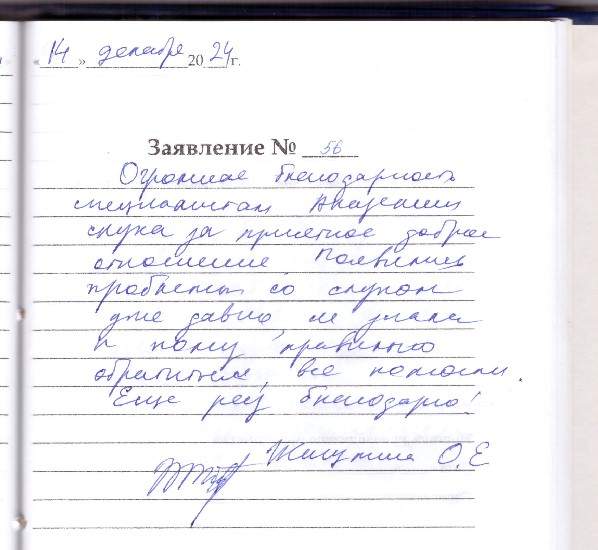 «14» декабря 2024г.
Заявление № 56
Огромная благодарность
специалистам Академии
слуха за приятное доброе
отношение. Появились
проблемы со слухом
уже давно, не знали
к кому правильно
обратиться, все помогли.
Еще раз благодарю!
О.Е